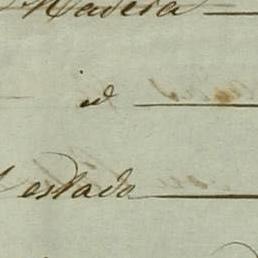 Madera
id
estado